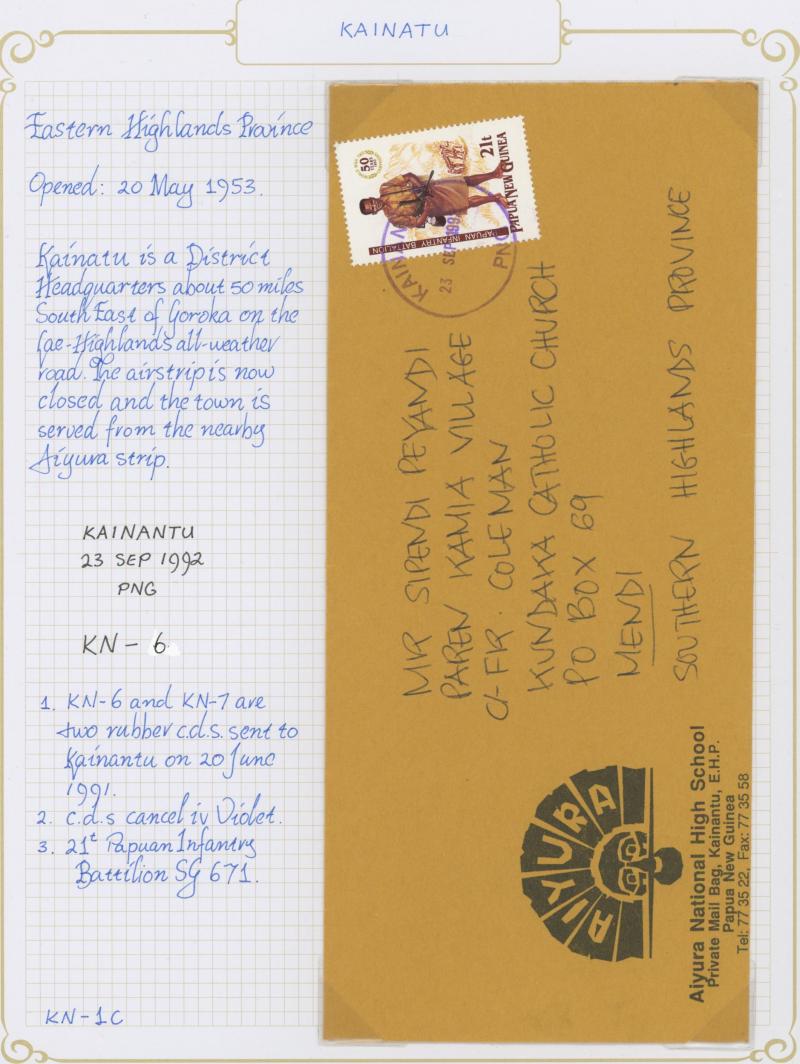 KAINATU
Eastern Highlands Province
Opened: 20 May 1953.
Kainatu is a District
Headquarters about 50 miles
South East of Goroka on the
Lae-Highlands all-weather
road. The airstrip is now
closed and the town is
served from the nearby
Aiyura strip.
KAINANTU
23 SEP 1992
PNG
KN - 6
1. KN-6 and KN-7 are
two rubber c.d.s. sent to
Kainantu on 20 June
1991.
2. c.d.s cancel iv Violet.
3. 21t Papuan Infantry
Battilion SG 671.
KN-1C
50
21t
PAPUA NEW GUINEA
PAPUAN INFANTRY BATTALION
KAINAN
23 SEP 199
PNG
MR SIPENDI PEYANDI
PAREN KAMIA VILLAGE
C/- FR. COLEMAN
KUNDAKA CATHOLIC CHURCH
PO BOX 69
MENDI
SOUTHERN HIGHLANDS PROVINCE
AIYURA
Aiyura National High School
Private Mail Bag, Kainantu, E.H.P.
Papua New Guinea
Tel: 77 35 22, Fax: 77 35 58